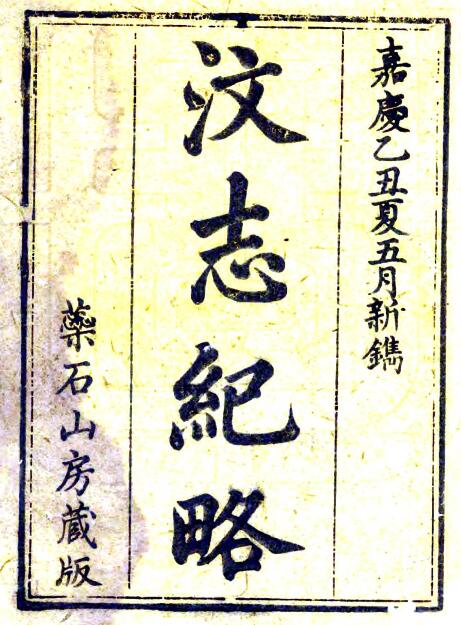 嘉慶乙丑夏五月新鐫
汶志紀略
藥石山房藏版